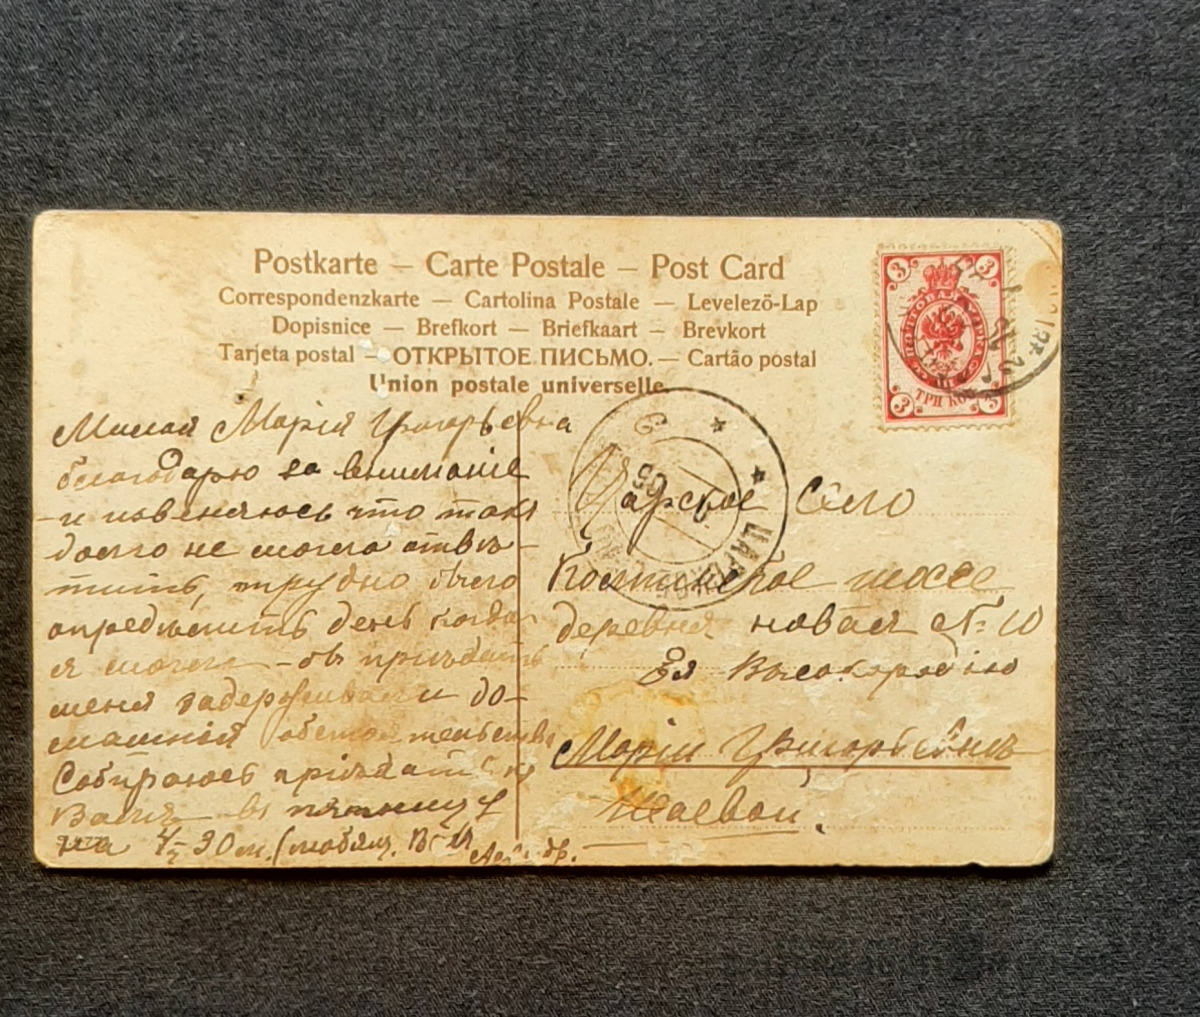 Postkarte — Carte Postale — Post Card
Correspondenzkarte — Cartolina Postale — Levelező-Lap
Dopisnice — Brefkort — Briefkaart — Brevkort
Tarjeta postal — ОТКРЫТОЕ ПИСЬМО. — Cartão postal
Union postale universelle
3 3
3 3
ПОЧТОВАЯ МАРКА
ТРИ КОП
Милая Марія Григорьевна
благодарю за вниманіе
и извеняюсь что такъ
долго не могла отвѣ-
тить, трудно было
определить день когда
я могла бъ пріѣдать
меня задерживали до-
машнія обстоятельства
Собираюсь пріѣдать къ
Вамъ въ пятницу
на 4 30 м.
Царское Село
шоссе
деревня новая № 10
Ея Высокородію
Маріи Григорьевнѣ
ЦАРСК
05